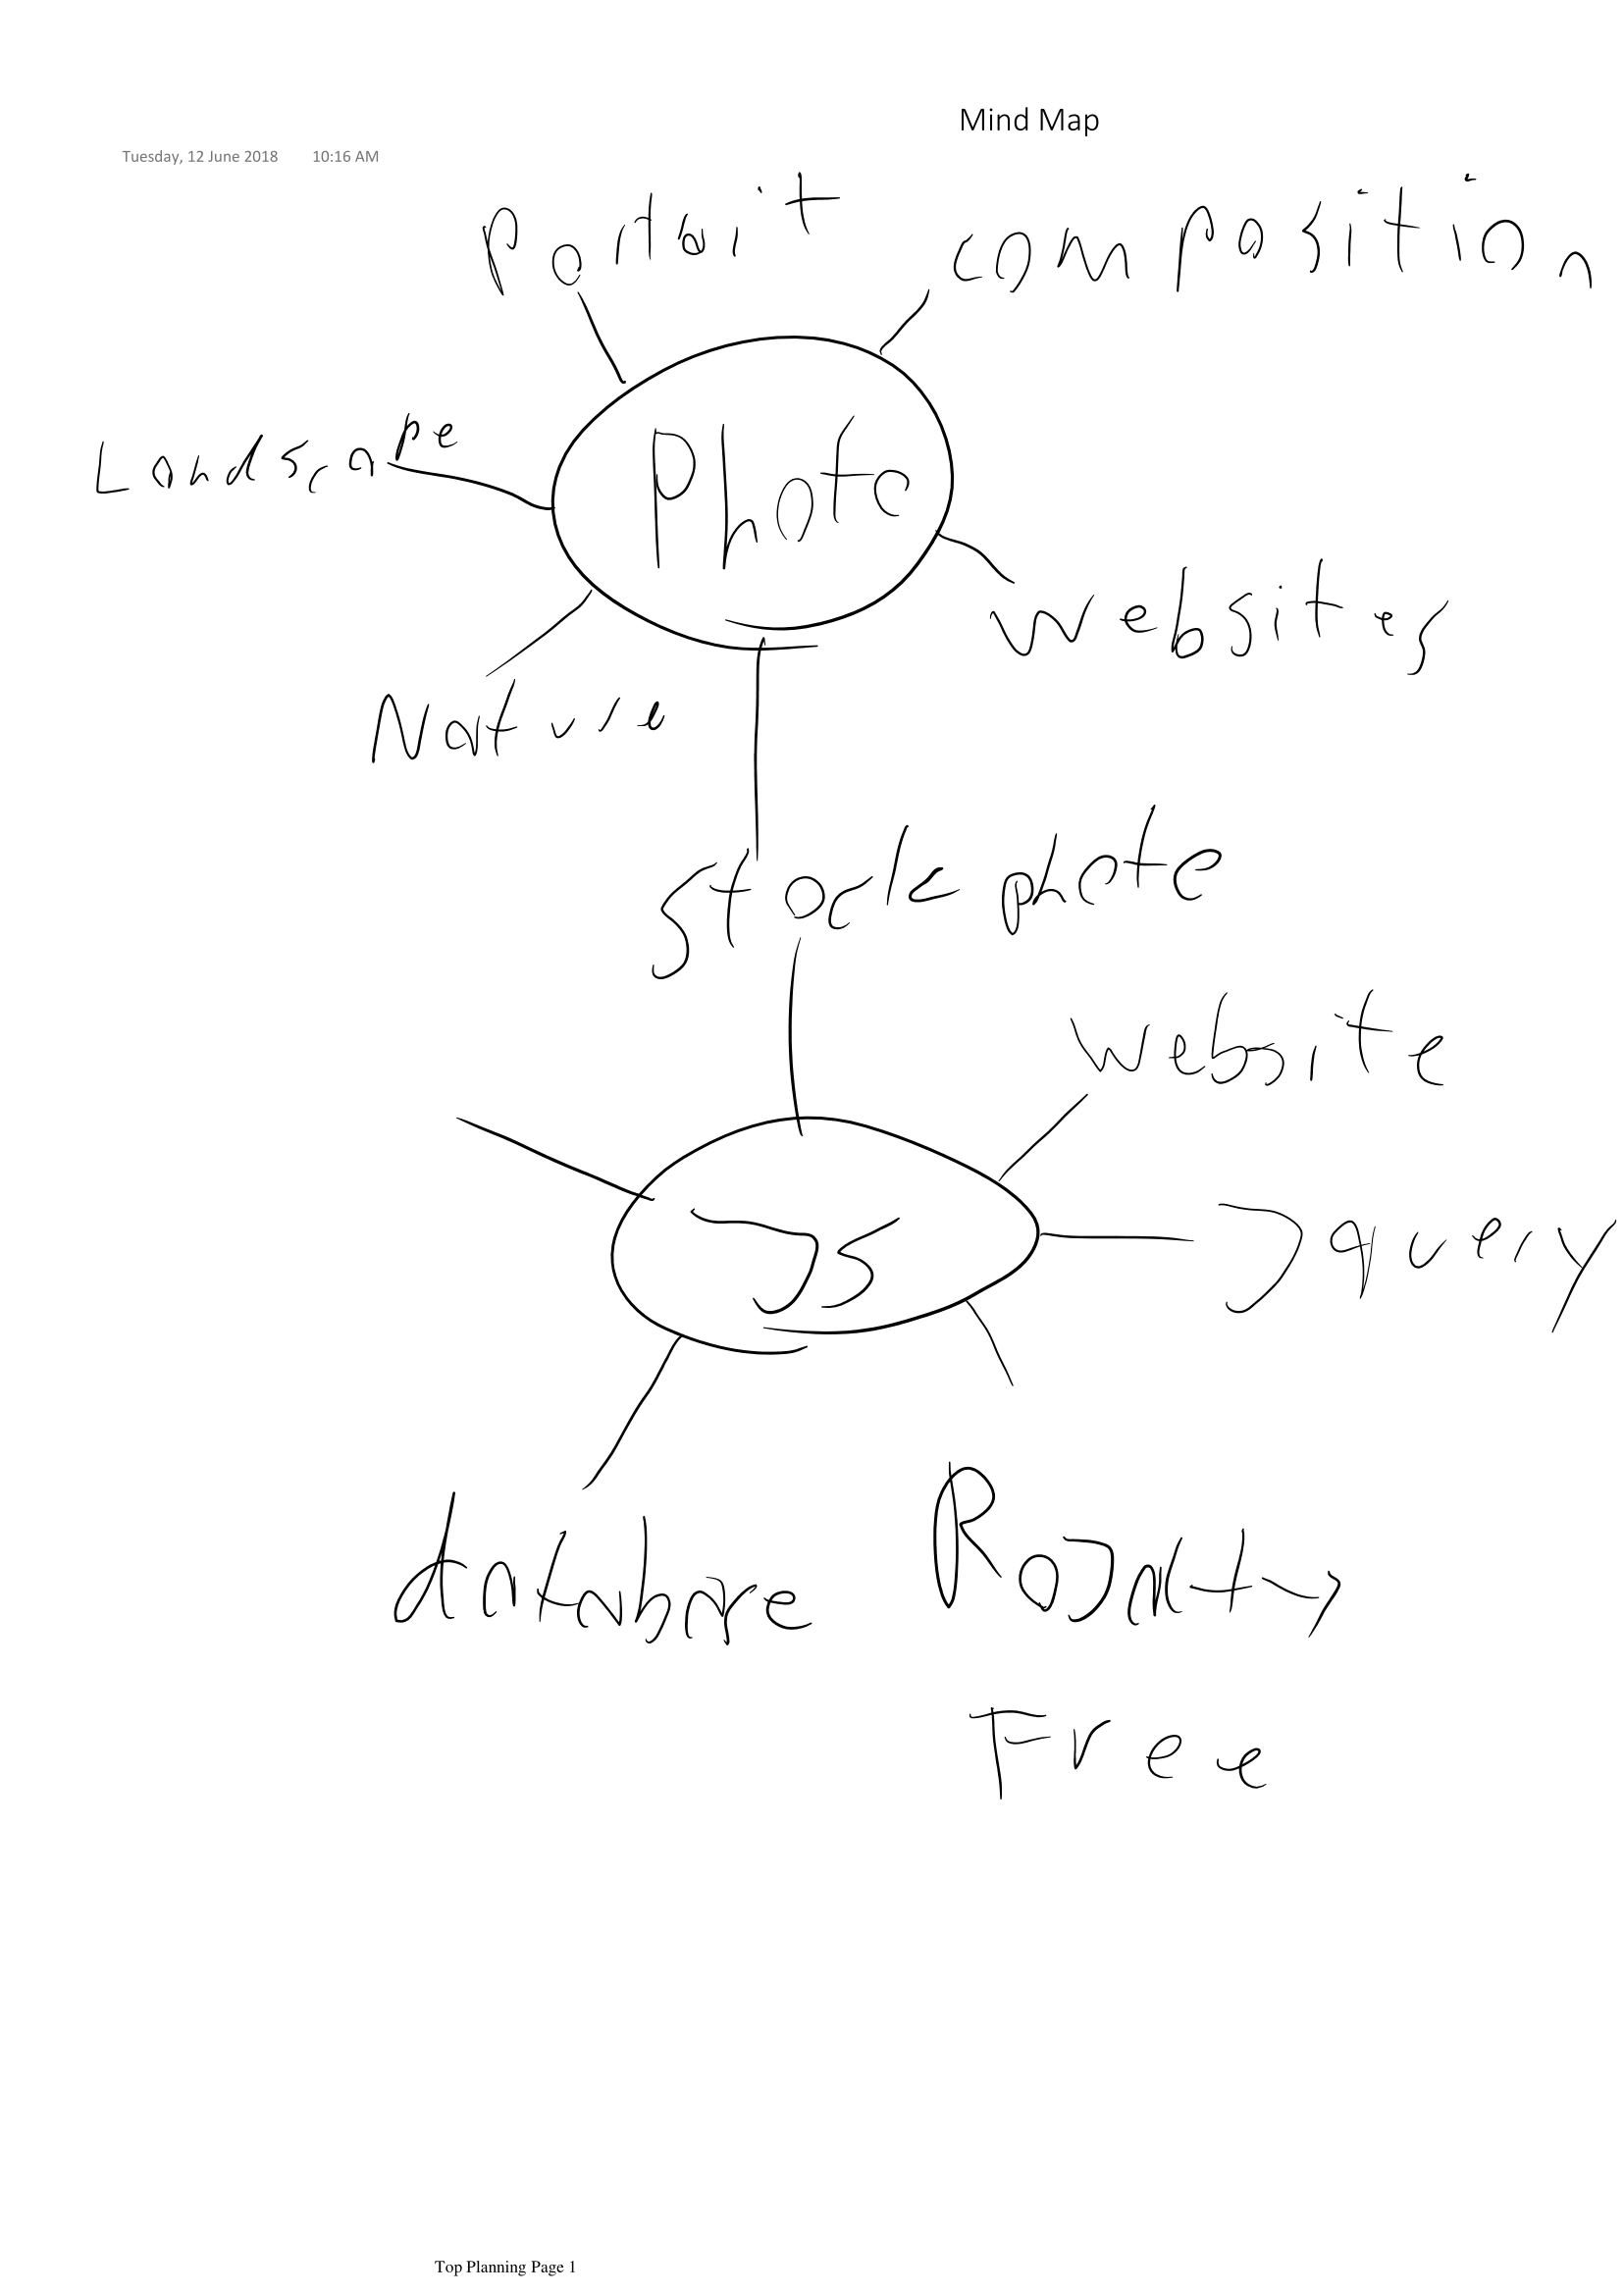 Mind Map
Tuesday, 12 June 2018 10:16 AM
Portait
composition
Landscape
Photo
websites
Nature
stock photo
website
JS
Jquery
database
Royalty
Free
Top Planning Page 1